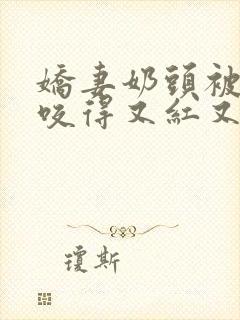 嬌妻奶頭被
咬得又紅又
瓊斯